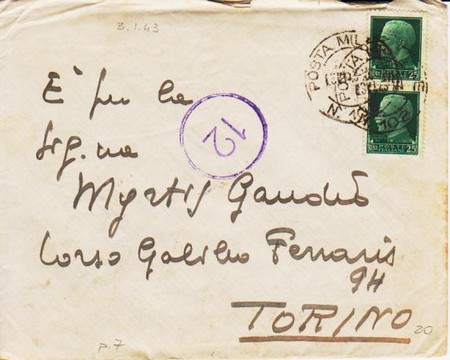 3.1.43
POSTA MIL
25
25
12
È per la
Sig.na
Myrtis Gaudiò
Corso Galileo Ferraris
94
TORINO
20
p.7